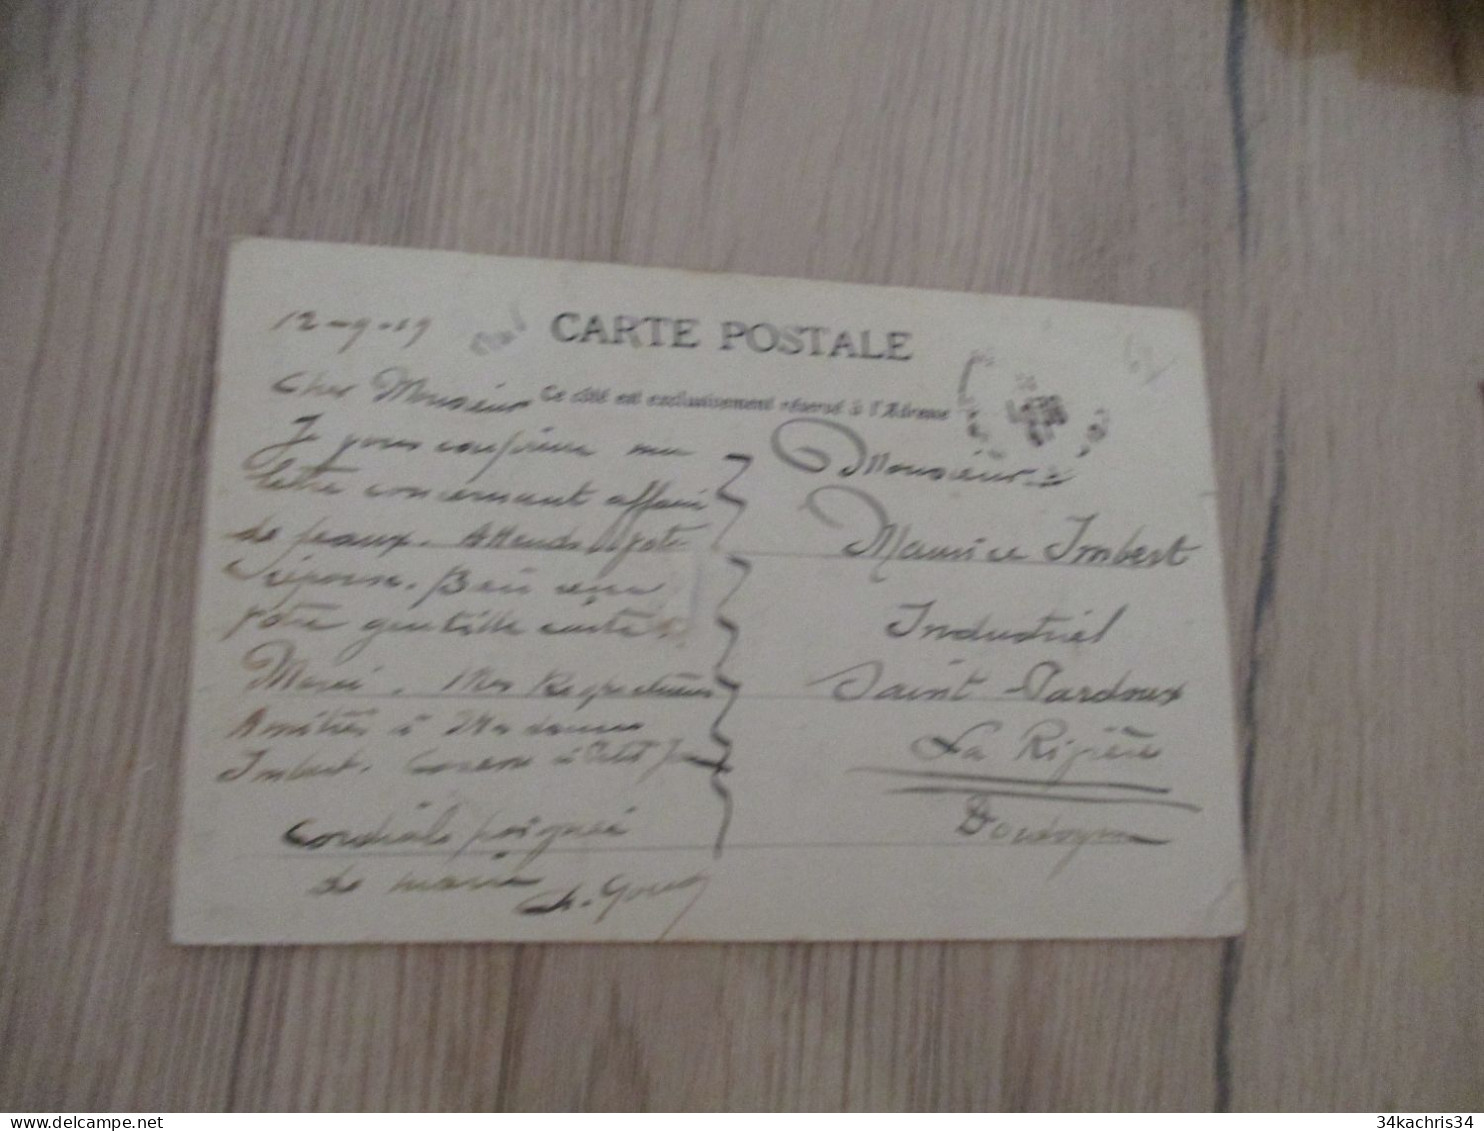 12-9-19
CARTE POSTALE
Ce côté est exclusivement réservé à l'Adresse
Cher Monsieur
Je vous confirme ma
lettre concernant affaire
de peaux. Attends votre
réponse. Bien reçu
votre gentille carte.
Merci. Mes Respectueuses
Amitiés à Madame
Imbert. Caresse à Petit
Cordiale poignée
de main
Monsieur
Maurice Imbert
Industriel
Saint-Pardoux
La Rivière
Dordogne
34kachris34